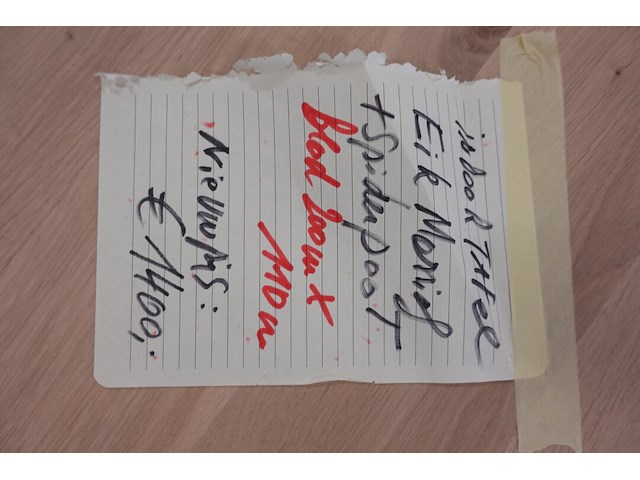 inDOOR TAFEL
Eik Massief
+ Spiderpoot
blad 200m x
110m
Nieuwprijs:
€ 1400,-